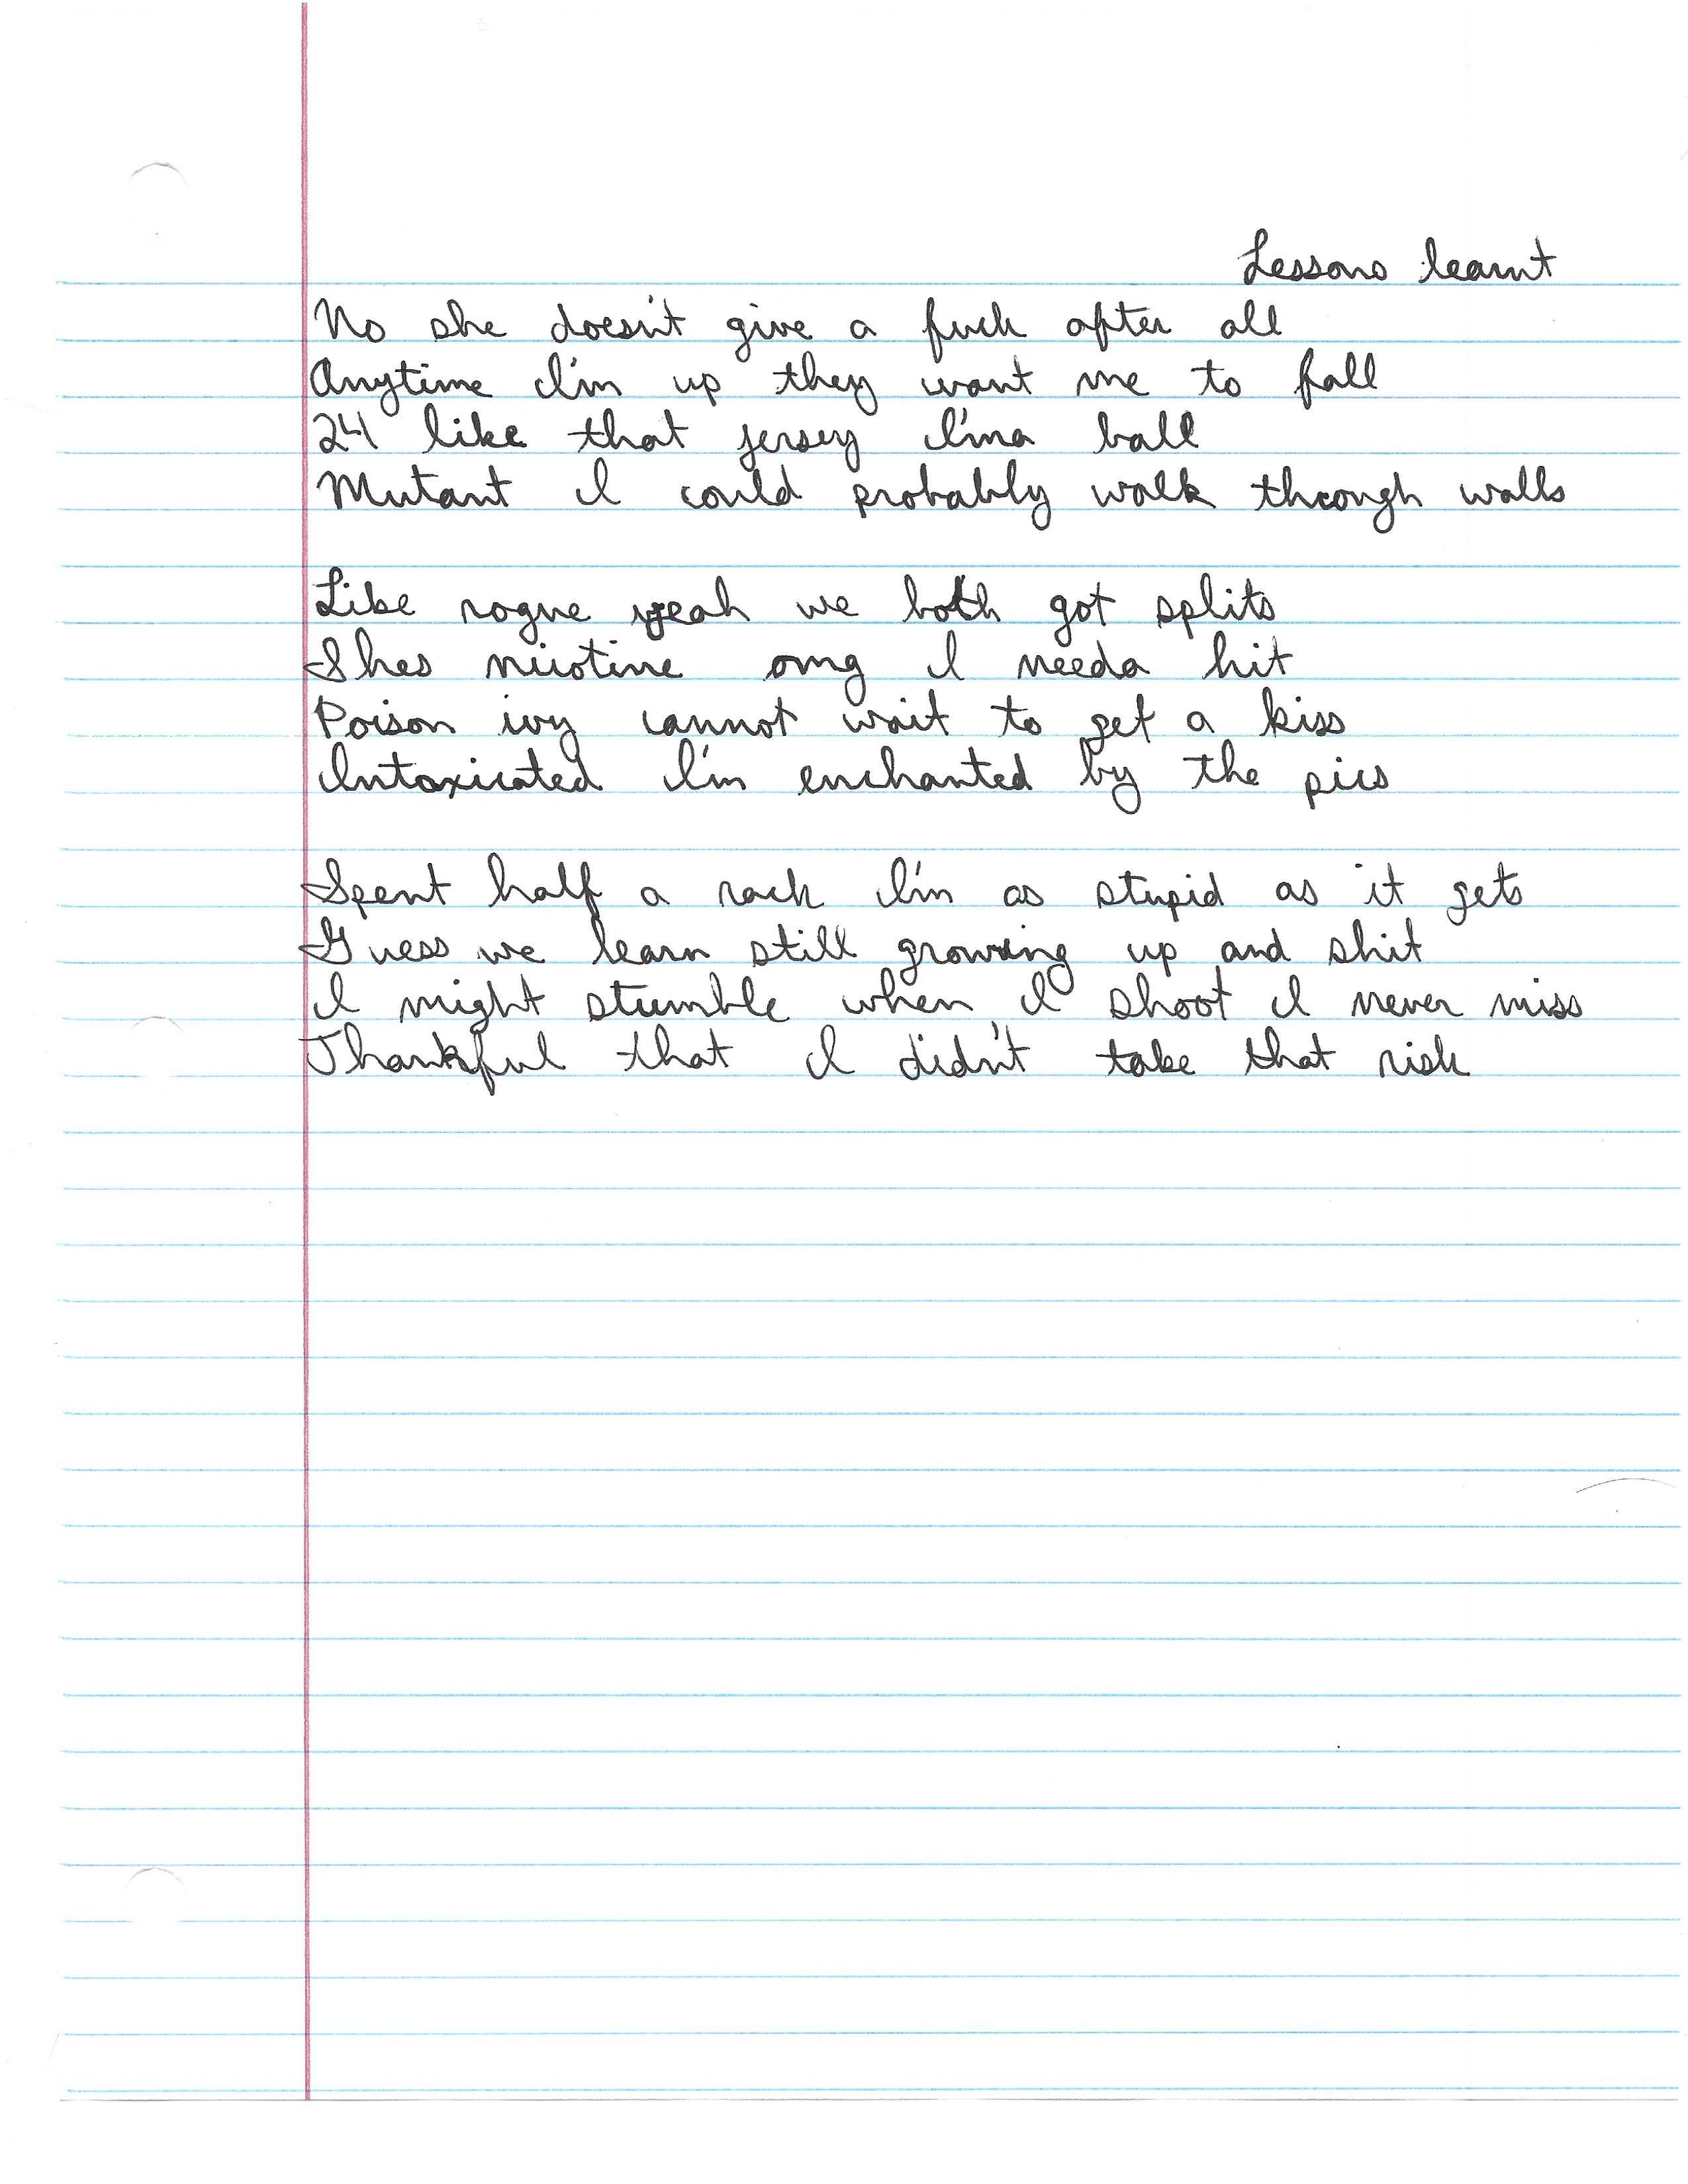 Lessons learnt
No she doesn't give a fuck after all
Anytime I'm up they want me to fall
24 like that jersey I'ma ball
Mutant I could probably walk through walls
Like rogue yeah we both got splits
Shes nicotine omg I needa hit
Poison ivy cannot wait to get a kiss
Intoxicated I'm enchanted by the pics
Spent half a rack I'm as stupid as it gets
Guess we learn still growing up and shit
I might stumble when I shoot I never miss
Thankful that I didn't take that risk